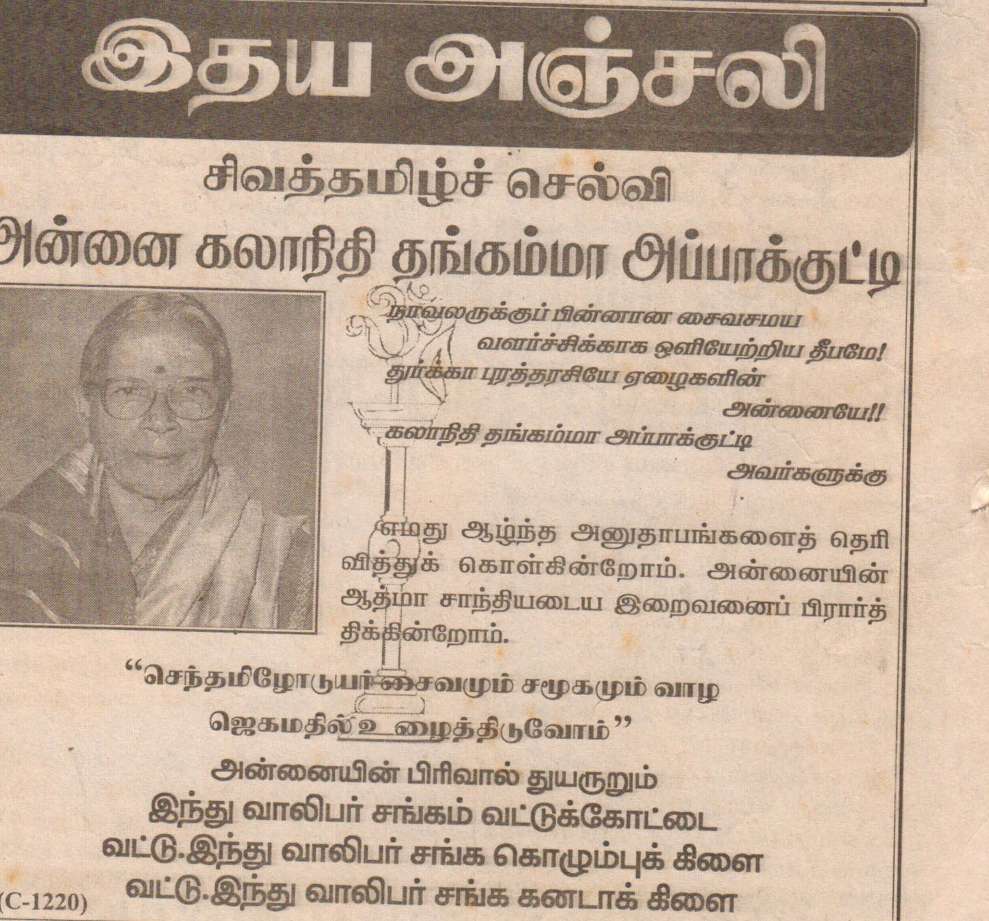 இதய அஞ்சலி
சிவத்தமிழ்ச் செல்வி
அன்னை கலாநிதி தங்கம்மா அப்பாக்குட்டி
நாவலருக்குப் பின்னான சைவசமய
வளர்ச்சிக்காக ஒளியேற்றிய தீபமே!
துர்க்கா புரத்தரசியே ஏழைகளின்
அன்னையே!!
கலாநிதி தங்கம்மா அப்பாக்குட்டி
அவர்களுக்கு
எமது ஆழ்ந்த அனுதாபங்களைத் தெரி
வித்துக் கொள்கின்றோம். அன்னையின்
ஆத்மா சாந்தியடைய இறைவனைப் பிரார்த்
திக்கின்றோம்.
“செந்தமிழோடுயர் சைவமும் சமூகமும் வாழ
ஜெகமதில் உழைத்திடுவோம்”
அன்னையின் பிரிவால் துயருறும்
இந்து வாலிபர் சங்கம் வட்டுக்கோட்டை
வட்டு.இந்து வாலிபர் சங்க கொழும்புக் கிளை
வட்டு.இந்து வாலிபர் சங்க கனடாக் கிளை
(C-1220)